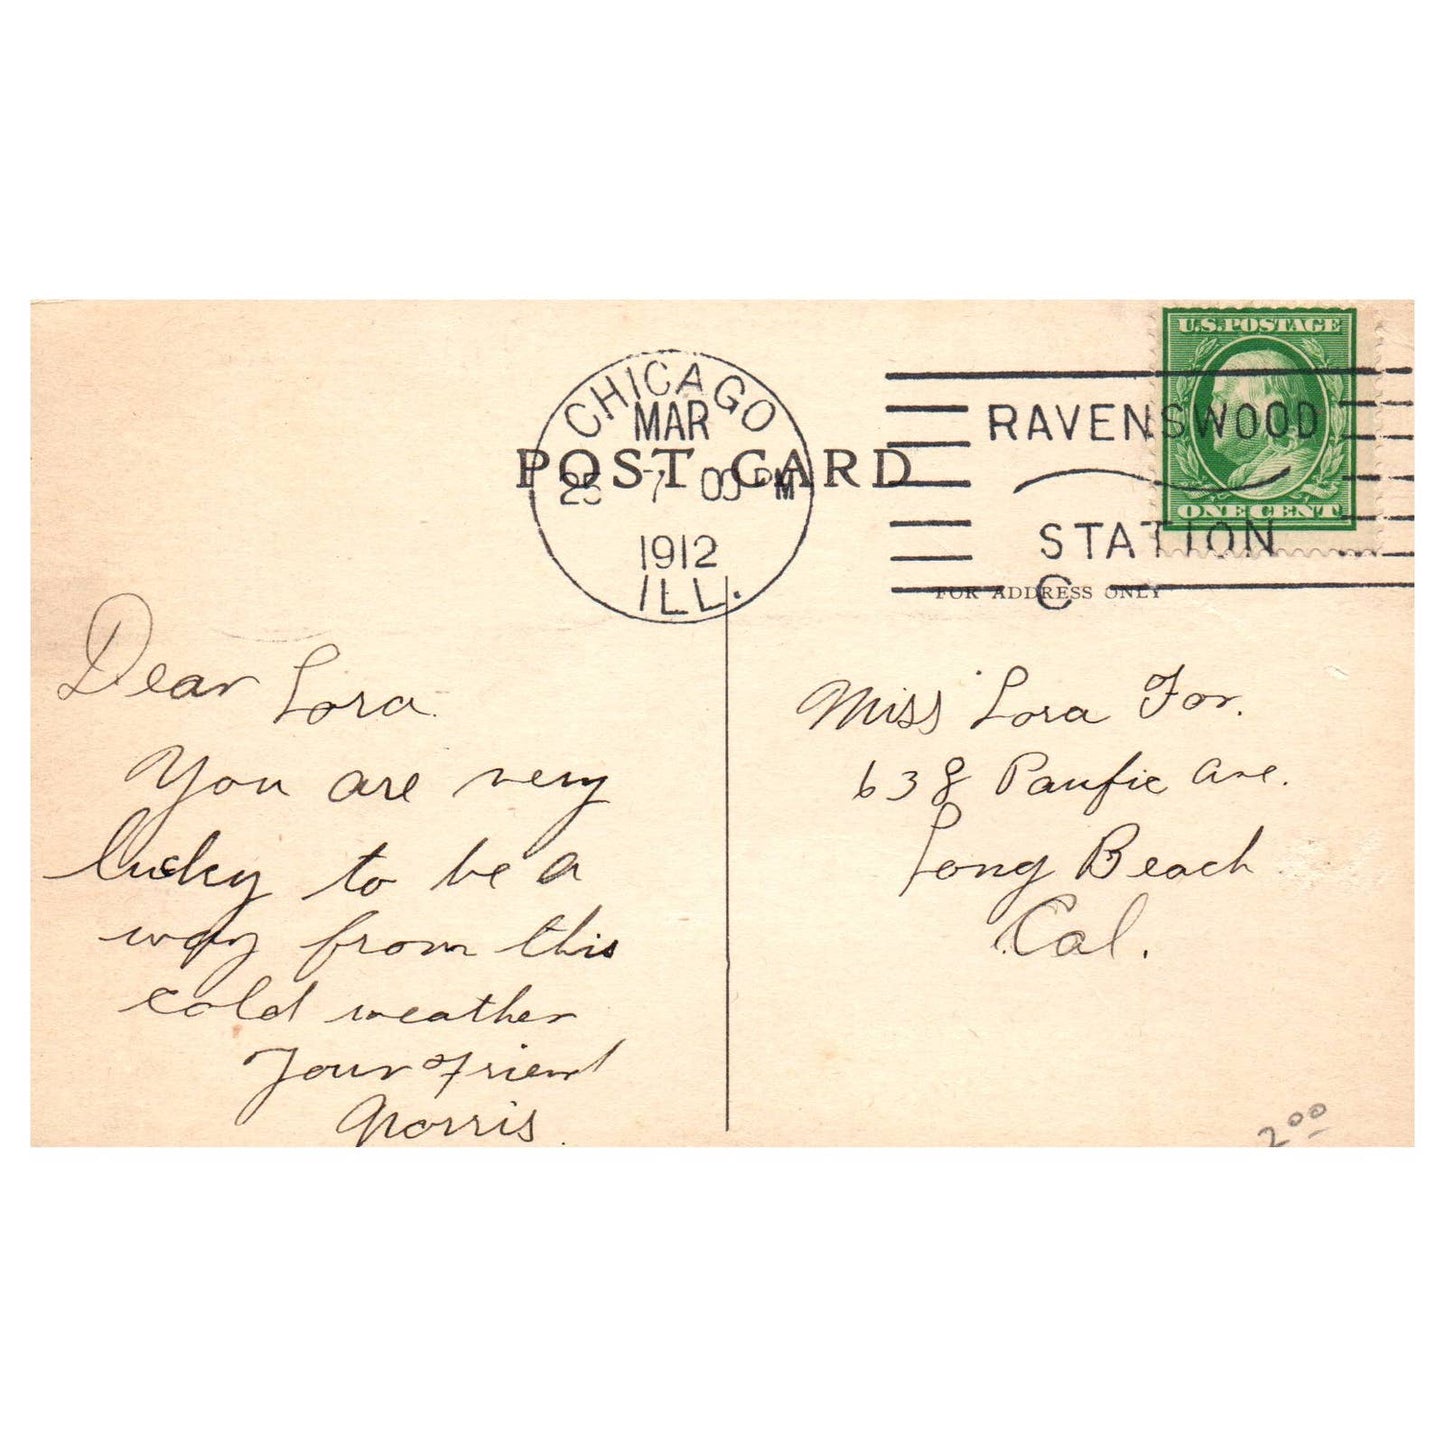 CHICAGO
MAR
25 7 00 PM
1912
ILL.
POST CARD
RAVENSWOOD
STATION
C
U.S. POSTAGE
ONE CENT
FOR ADDRESS ONLY
Dear Lora.
You are very
lucky to be a
way from this
cold weather
Your friend
Norris.
Miss Lora
638 Pacific Ave.
Long Beach
Cal.
2.00